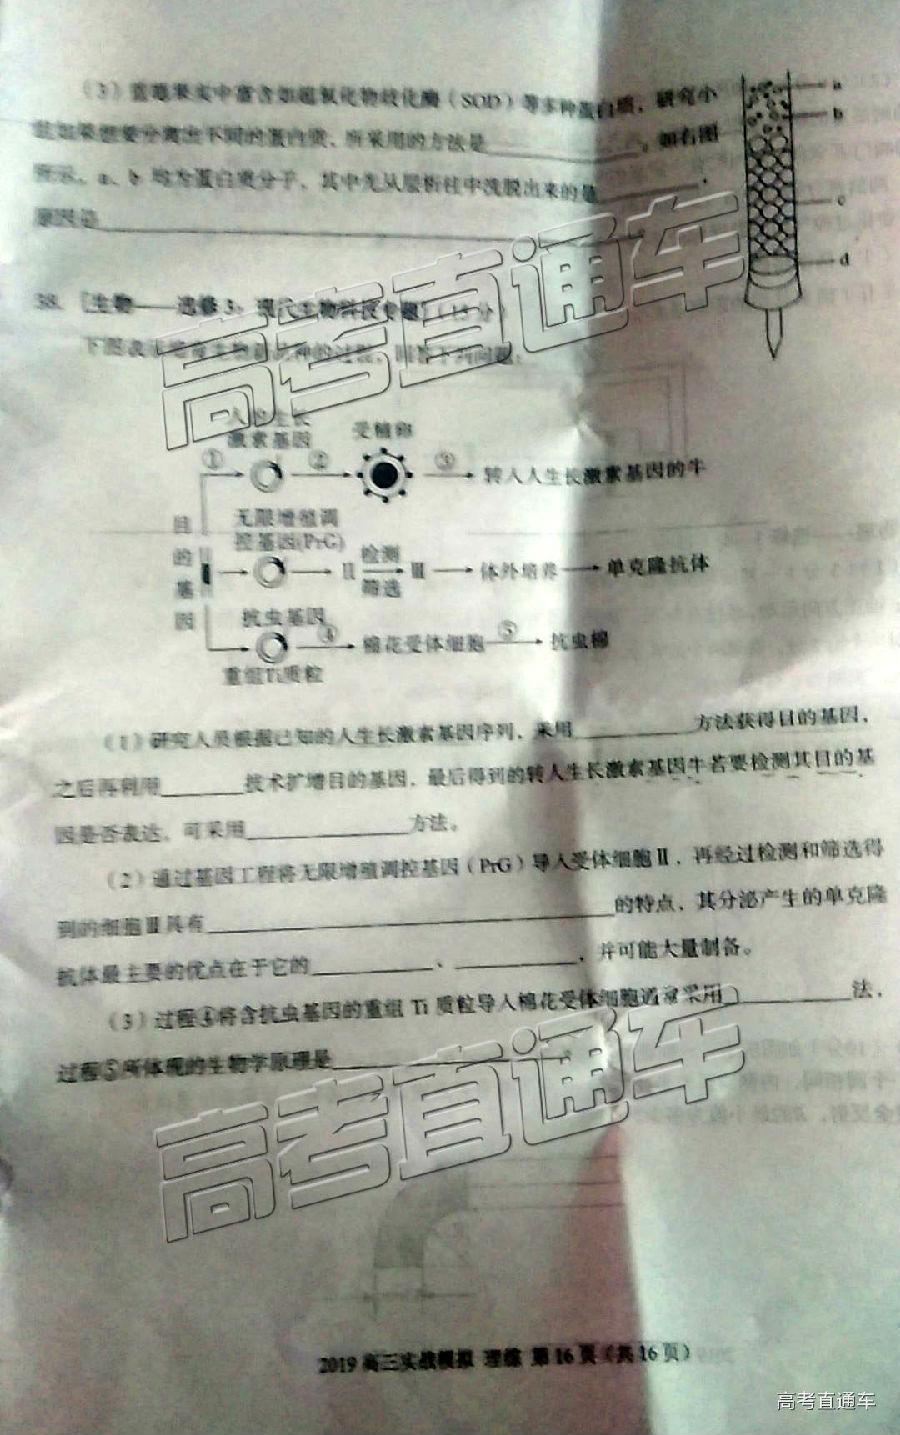 (3)蓝莓果实中富含如超氧化物歧化酶(SOD)等多种蛋白质,研究小
组如果想要分离出不同的蛋白质,所采用的方法是________。如右图
所示,a、b 均为蛋白质分子,其中先从层析柱中洗脱出来的是________,
原因是________
a
b
c
d
38. [生物——选修3:现代生物科技专题](15分)
下图表示培育生物新品种的过程,回答下列问题:
人的生长
激素基因
受精卵
① ② ③ 转入人生长激素基因的牛
目的基因
无限增殖调
控基因(PrG)
Ⅱ 检测筛选 Ⅲ 体外培养 单克隆抗体
抗虫基因
④ 棉花受体细胞 ⑤ 抗虫棉
重组Ti质粒
(1)研究人员根据已知的人生长激素基因序列,采用________方法获得目的基因,
之后再利用________技术扩增目的基因,最后得到的转人生长激素基因牛若要检测其目的基
因是否表达,可采用________方法。
(2)通过基因工程将无限增殖调控基因(PrG)导入受体细胞Ⅱ,再经过检测和筛选得
到的细胞Ⅲ具有________的特点,其分泌产生的单克隆
抗体最主要的优点在于它的________、________,并可能大量制备。
(3)过程④将含抗虫基因的重组 Ti 质粒导入棉花受体细胞通常采用________法,
过程⑤所体现的生物学原理是________
高考直通车
高考直通车
2019 高三实战模拟 理综 第16页(共16页)
高考直通车